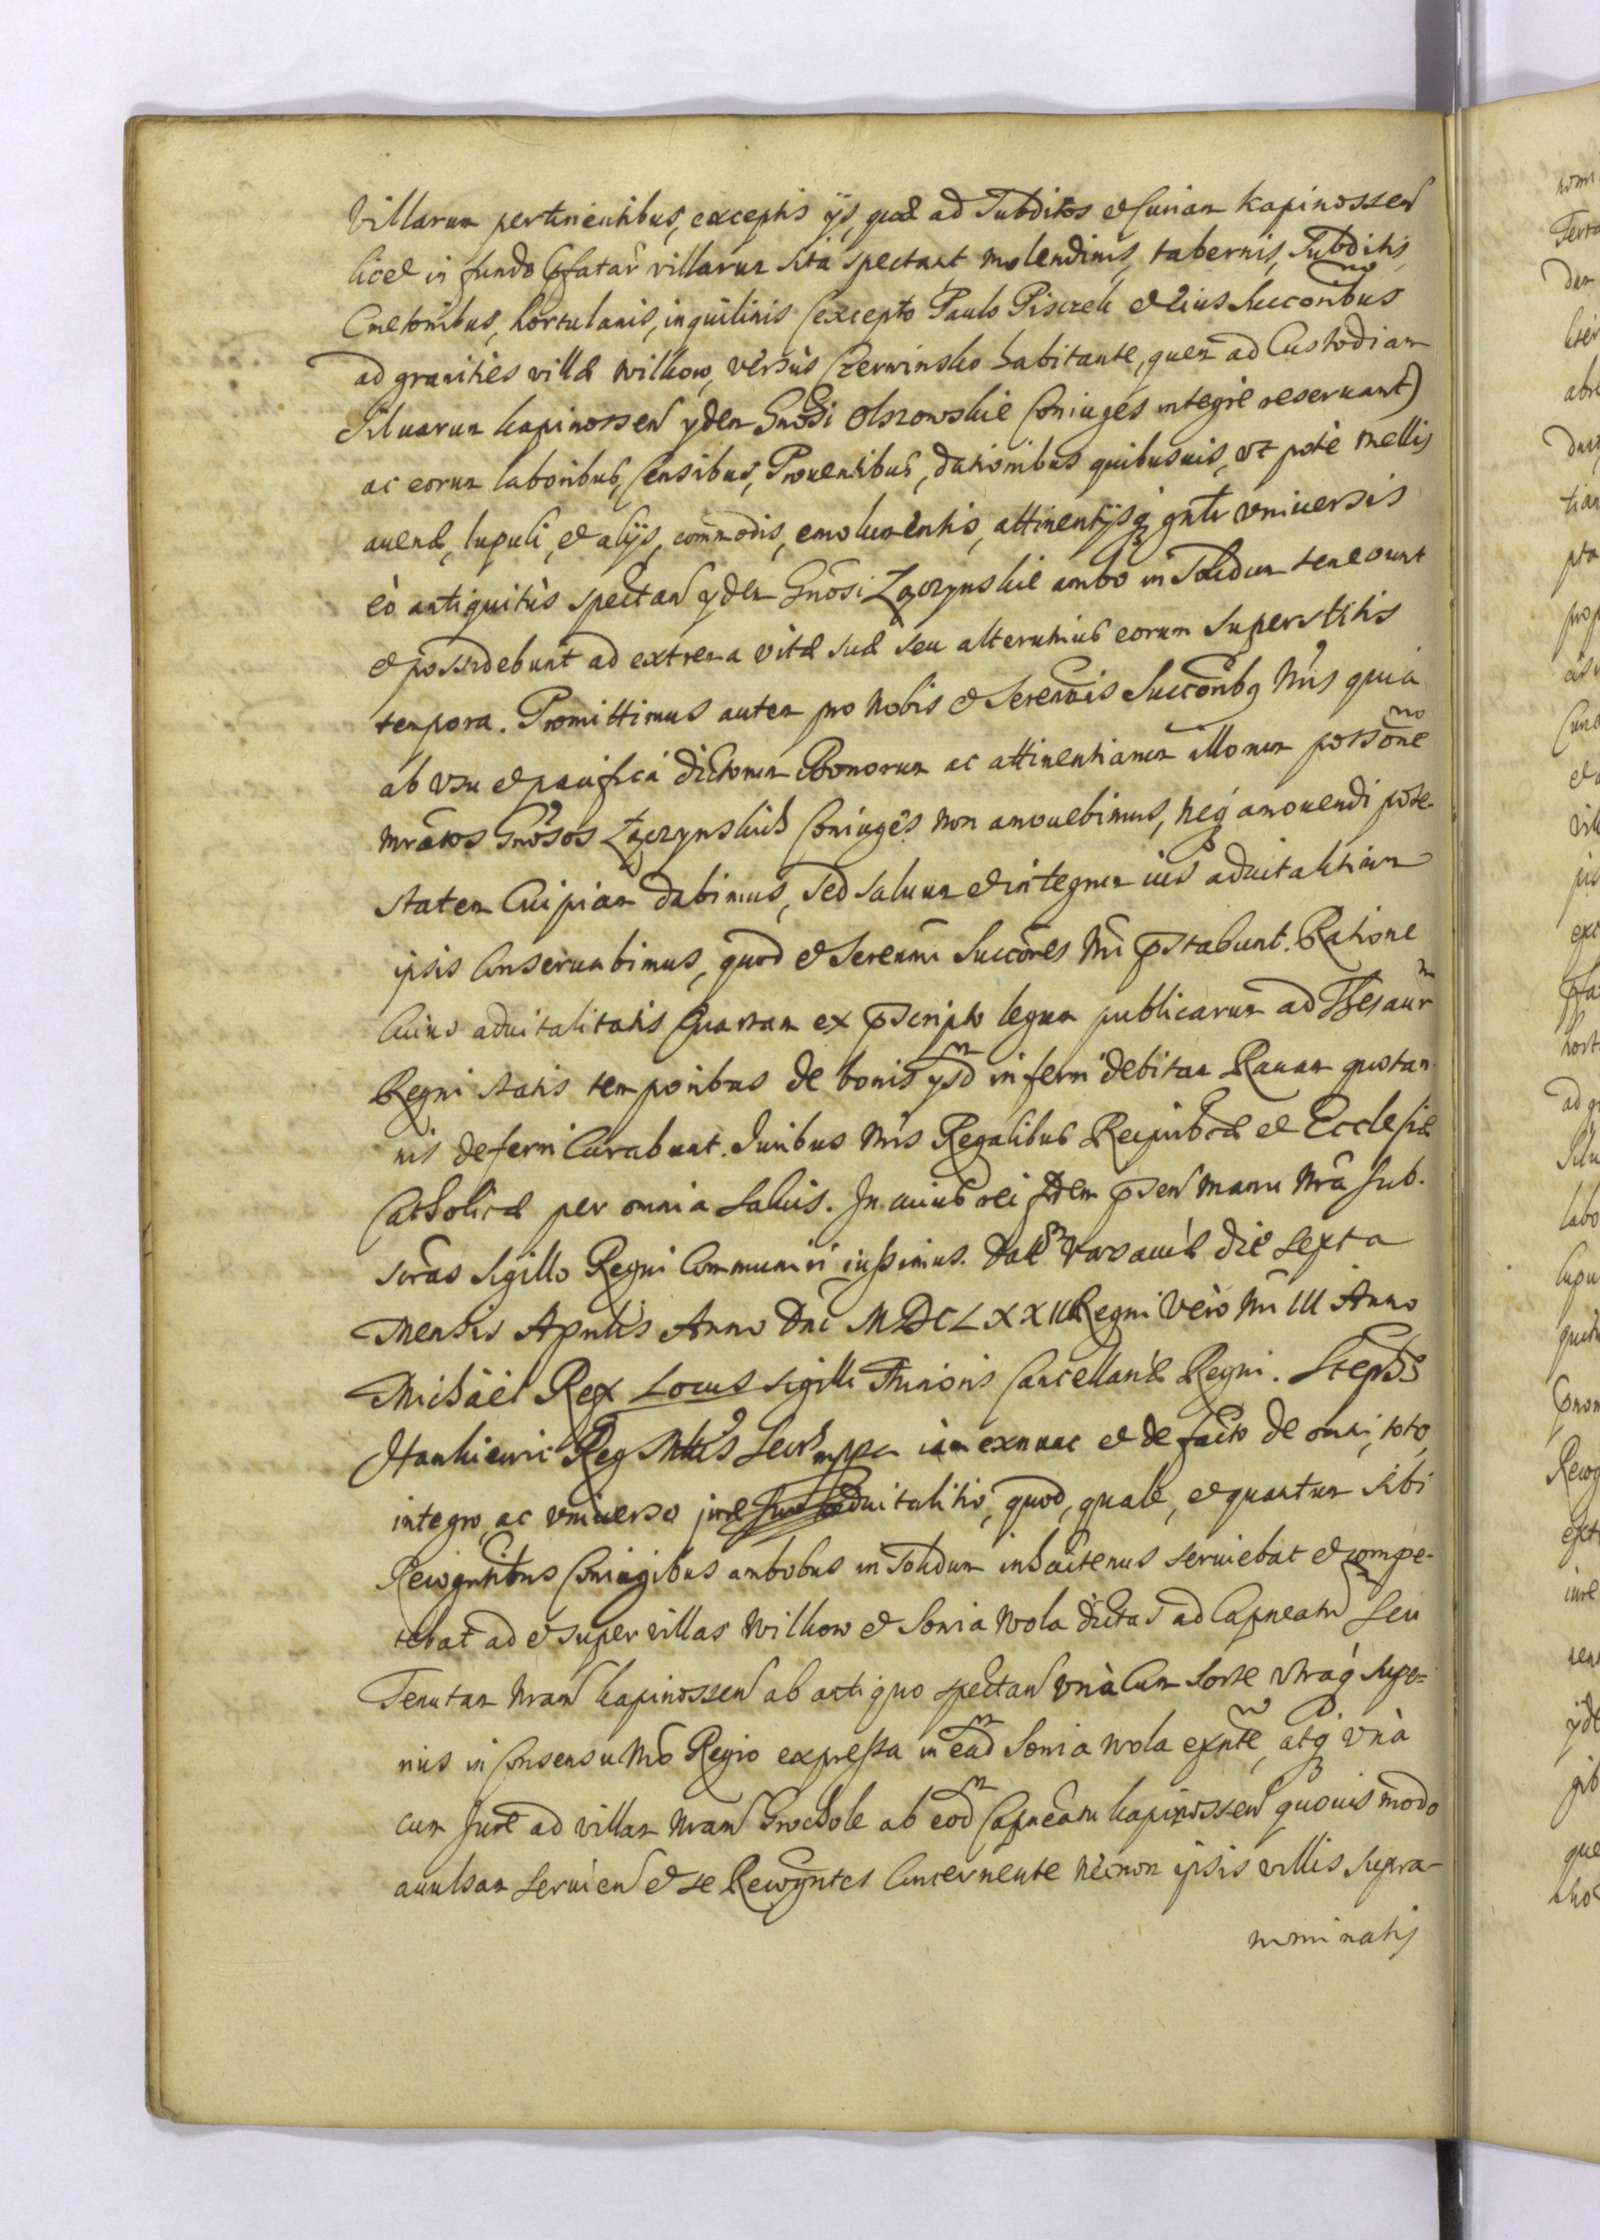 Villarum pertinentibus, exceptis ijs, quae ad Subditos et Curiam Kapinossen
licet in fundo Pfatar villarum sita spectant molendinis, tabernis, Subditis
Cmetonibus, hortulanis, inquilinis (excepto Paulo Pisczek et eius Succoribus
ad granities villae Wilkow, versus Czerwinsko habitante, quem ad Custodiam
Siluarum Kapinossen ydem Gnosi Olszowskie Coniuges integre reseruant)
ac eorum laboribus, Censibus, Prouentibus, dationibus quibusuis, ut pote mellis
auenae, lupuli, et alijs, commodis, emolumentis, attinentijsq gnlr vniuersis
eo antiquitus spectan ydem Gnosi Zaczynskie ambo in Solidum tenebunt
et possidebunt ad extrema vitae suae seu alterutrius eorum superstitis
tempora. Promittimus autem pro Nobis et Serenmis Succoribq Nris quia
ab vsu et pacifica dictorum Bonorum ac attinentiarum illorum possone
mratos Gnosos Zaczynskich Coniuges non amouebimus, neq amouendi pote-
statem Cuipiam dabimus, sed saluum et integrum ius aduitalitium
ipsis Conseruabimus, quod et Serenmi Succores Nri pstabunt. Ratione
Cuius aduitalitatis Quartam ex pscripto legum publicarum ad Thesaur
Regni statis temporibus de bonis ysd inferri debitam Rauam quotan-
nis deferri Curabunt. Iuribus Nris Regalibus Reipubcae et Ecclesiae
Catholicae per omnia saluis. In cuius rei fidem psen manu Nra sub-
scras Sigillo Regni Communiri iussimus. Datt Varsauiae die sexta
Mensis Aprilis Anno Dni MDCLXXII Regni Vero Nri III Anno
Michael Rex Locus sigilli Minoris Cancellariae Regni. Stephs
Hankiewic Reg Mttis Secrs mppa iam exnunc et de facto de omni, toto,
integro, ac vniuerso jure aduitalitio, quod, quale, et quantum sibi
Recogntibus Coniugibus ambobus in Solidum inhactenus seruiebat et compe-
tebat ad et super villas Wilkow et Sonia Wola dictas ad Capneatu seu
Tenutam Nram Kapinossen ab antiquo spectan vna Cum sorte vtraq supe-
rius in Consensu Nro Regio expressa in ead Sonia Wola exnte, atq vna
cum Jure ad villam Nram Grochole ab eod Capneatu Kapinossen quouis modo
auulsam seruien et se Recogntes Concernente necnon ipsis villis supra-
nominatis